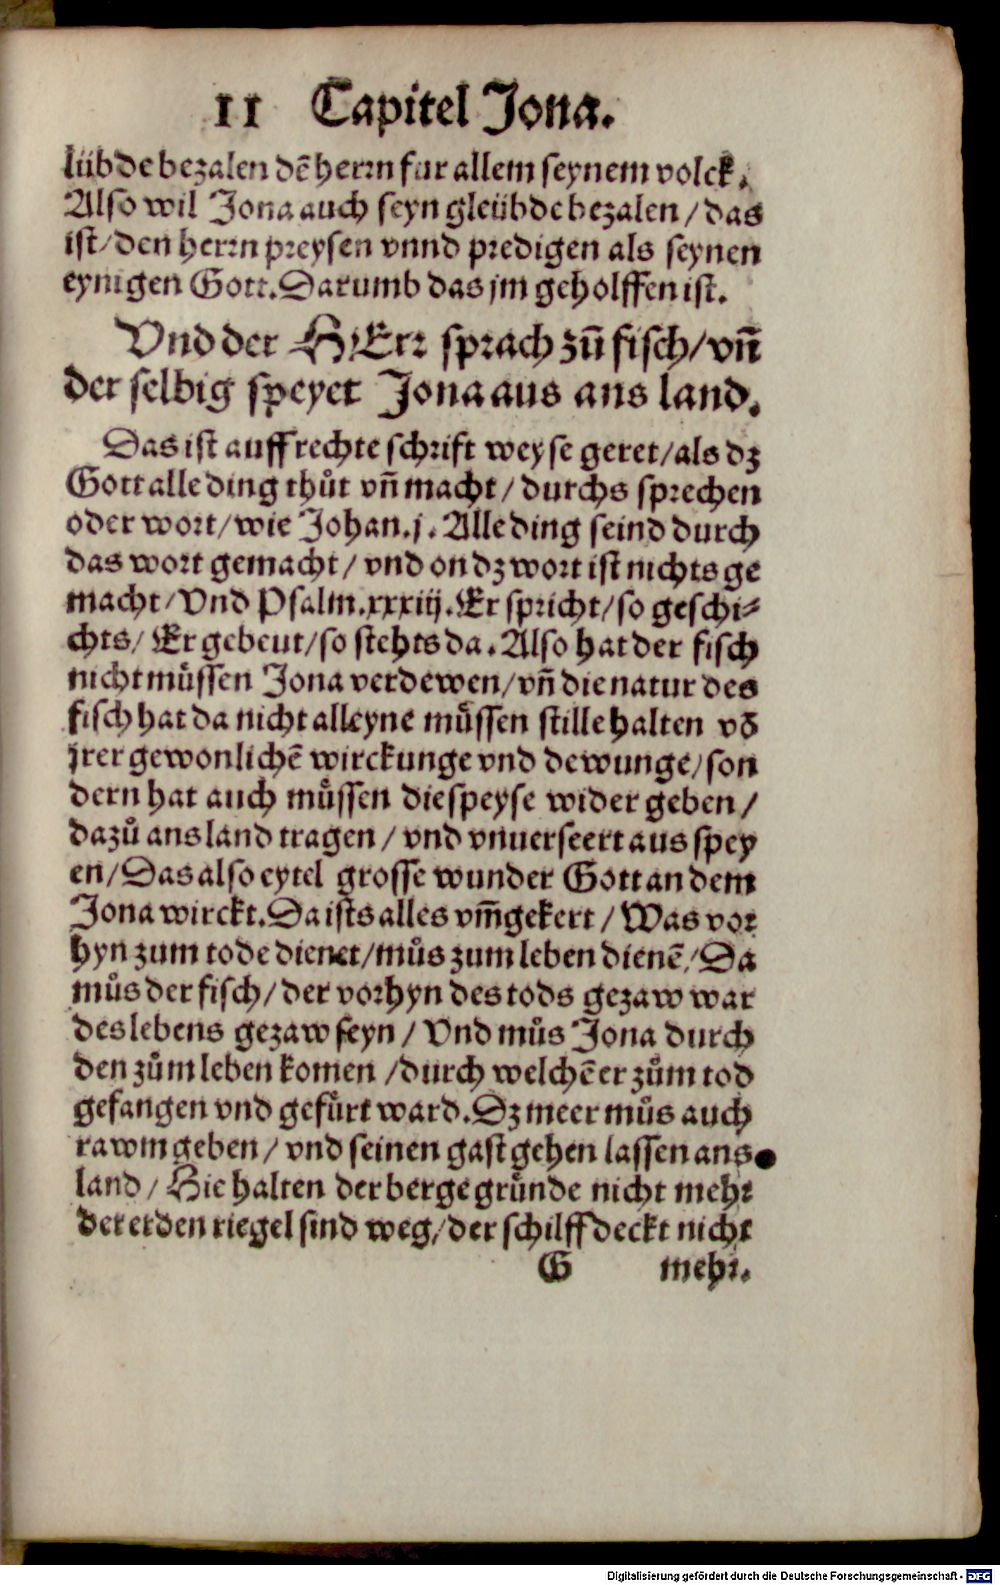 II Capitel Jona.
lübde bezalen dē herrn fur allem seynem volck.
Also wil Jona auch seyn gleübde bezalen / das
ist / den herrn preysen vnnd predigen als seynen
eynigen Gott. Darumb das jm geholffen ist.
Vnd der HErr sprach zū fisch / vn̄
der selbig speyet Jona aus ans land.
Das ist auff rechte schrift weyse geret / als dz
Gott alle ding thůt vn̄ macht / durchs sprechen
oder wort / wie Johan. j. Alle ding seind durch
das wort gemacht / vnd on dz wort ist nichts ge
macht / Vnd Psalm. xxxiij. Er spricht / so geschi⸗
chts / Er gebeut / so stehts da. Also hat der fisch
nicht müssen Jona verdewen / vn̄ die natur des
fisch hat da nicht alleyne müssen stille halten vō
jrer gewonlichē wirckunge vnd dewunge / son
dern hat auch müssen die speyse wider geben /
dazů ans land tragen / vnd vnuerseert aus spey
en / Das also eytel grosse wunder Gott an dem
Jona wirckt. Da ists alles vm̄gekert / Was vor
hyn zum tode dienet / můs zum leben dienē / Da
můs der fisch / der vorhyn des tods gezaw war
des lebens gezaw seyn / Vnd můs Jona durch
den zům leben komen / durch welchē er zům tod
gefangen vnd gefürt ward. Dz meer můs auch
rawm geben / vnd seinen gast gehen lassen ans
land / Hie halten der berge gründe nicht mehr
der erden riegel sind weg / der schilff deckt nicht
G mehr.
Digitalisierung gefördert durch die Deutsche Forschungsgemeinschaft - DFG